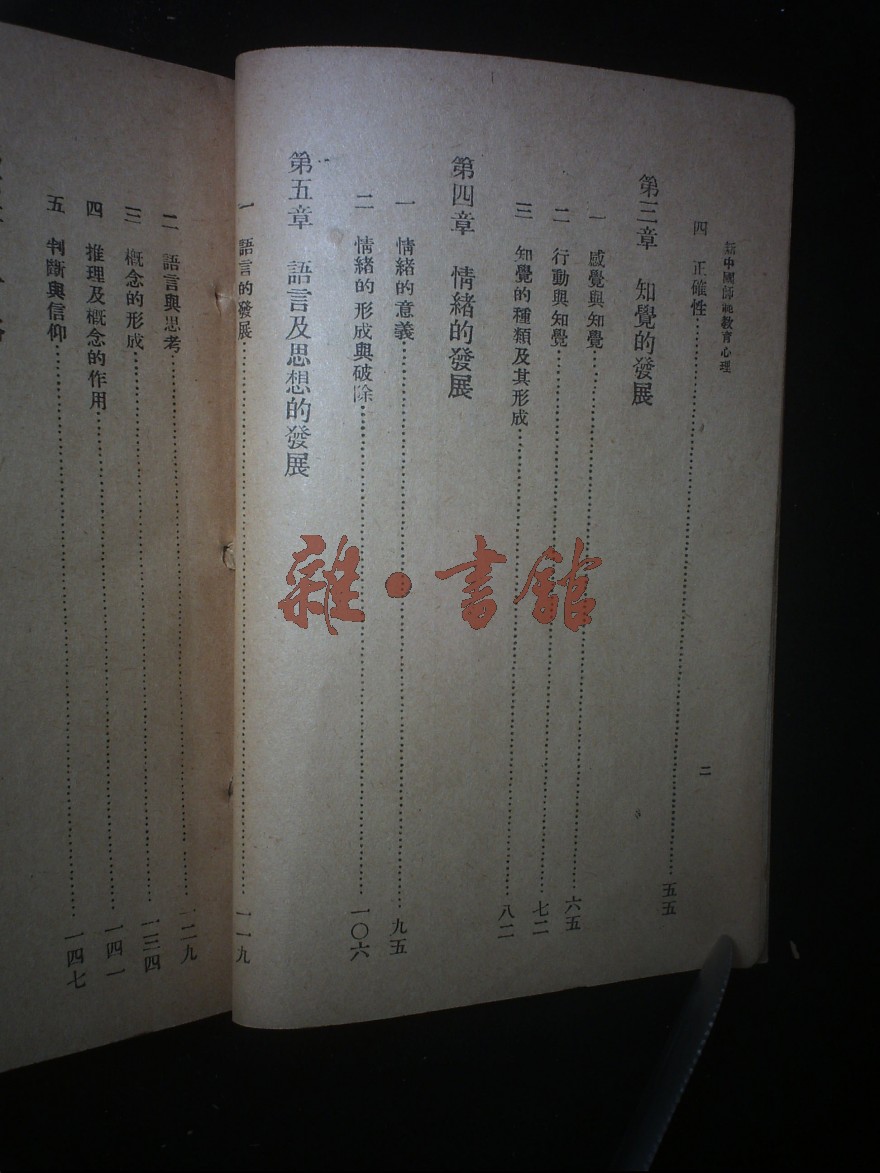 新中國師範教育心理
二
四 正確性……五五
第三章 知覺的發展
一 感覺與知覺……六五
二 行動與知覺……七二
三 知覺的種類及其形成……八二
第四章 情緒的發展
一 情緒的意義……九五
二 情緒的形成與破除……一〇六
第五章 語言及思想的發展
一 語言的發展……一一九
二 語言與思考……一二九
三 概念的形成……一三四
四 推理及概念的作用……一四一
五 判斷與信仰……一四七
雜·書館